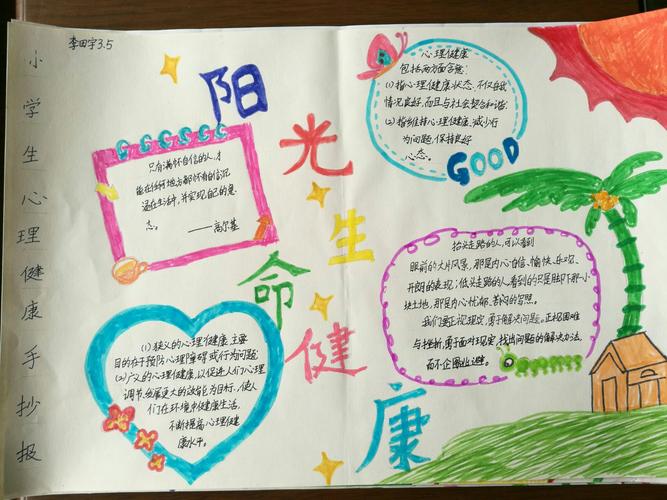 李田宇3.5
小学生心理健康手抄报
阳光生命健康
只有满怀自信的人,才
能在任何地方都怀有自信沉
浸在生活中,并实现自己的意
志。 ——高尔基
心理健康
包括两方面含意:
(1)指心理健康状态,不仅自我
情况良好,而且与社会契合和谐;
(2)指维持心理健康,减少行
为问题,保持良好
心态。
GOOD
抬头走路的人,可以看到
眼前的大片风景,那是内心自信、愉快、乐观、
开朗的表现;低头走路的人看到的只是脚下那一小
块土地,那是内心忧郁、苦闷的写照。
我们要正视现实,勇于解决问题。正视困难
与挫折,勇于面对现实,找出问题的解决办法,
而不企图逃避。
(1)狭义的心理健康,主要
目的在于预防心理障碍或行为问题
(2)广义的心理健康,以促进人们心理
调节,发展更大的效能为目标,使人
们在环境中健康生活,
不断提高心理健
康水平。